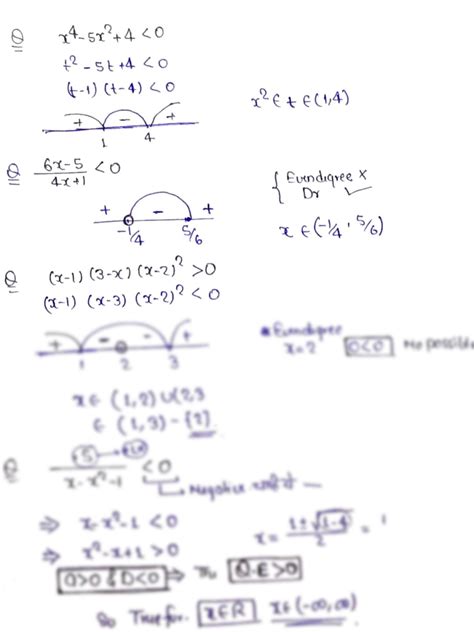 Q x⁴-5x²+4 <0
t²-5t+4 <0
(t-1) (t-4) <0
x² ∈ t ∈ (1,4)
+ - +
1 4
Q (6x-5)/(4x+1) <0
{ Evendigree ×
Dr ✓
+ - +
-1/4 5/6
x ∈ (-1/4, 5/6)
Q (x-1) (3-x) (x-2)² >0
(x-1) (x-3) (x-2)² <0
+ - - +
1 2 3
Evendigree
x=2 0<0 No possible
x ∈ (1,2) ∪ (2,3
∈ (1,3) - {2}
Q +5 / x-x²-1 <0
Negative
⇒ x-x²-1 <0
⇒ x²-x+1 >0
x = (1±√1-4)/2 =
a>0 & D<0 ⇒ Q.E>0
So True for x∈R x∈(-∞,∞)